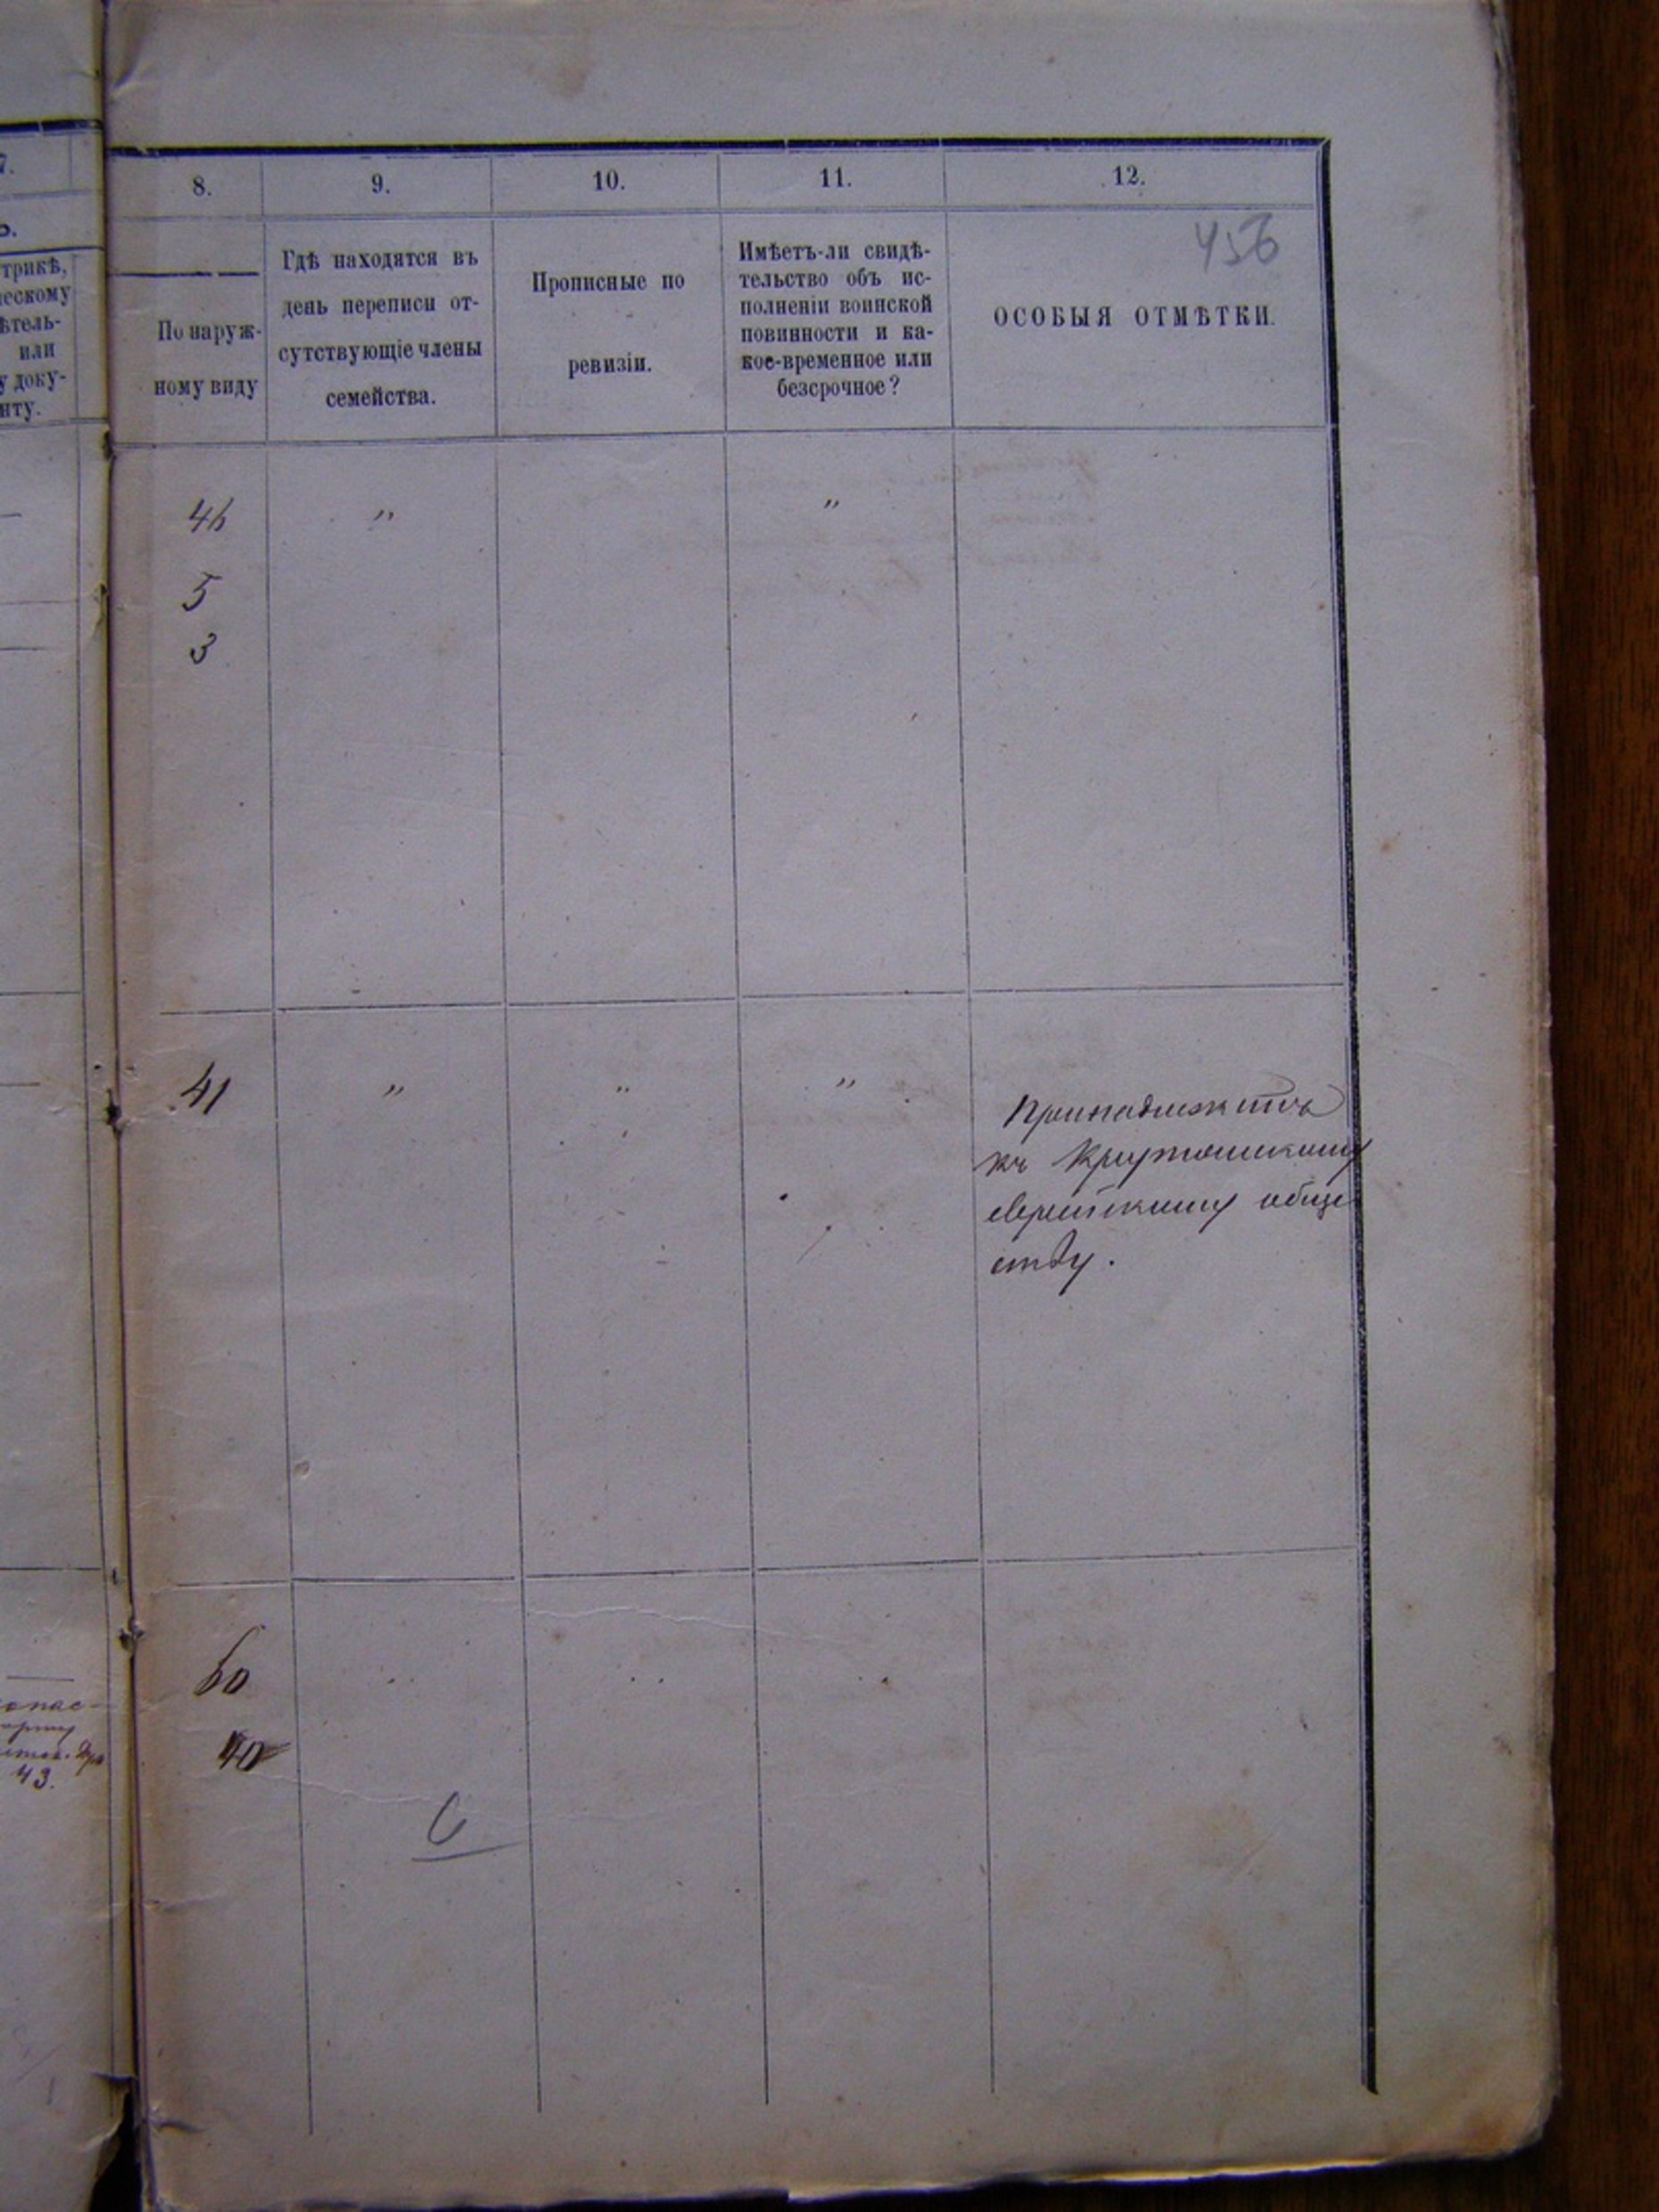 7.
8.
9.
10.
11.
12.
456
трикѣ,
ческому
ѣтель-
или
у доку-
нту.
По наруж-
ному виду
Гдѣ находятся въ
день переписи от-
сутствующіе члены
семейства.
Прописные по
ревизіи.
Имѣетъ-ли свидѣ-
тельство объ ис-
полненіи воинской
повинности и ка-
кое-временное или
безсрочное?
ОСОБЫЯ ОТМѢТКИ.
46 " "
5
3
41 " " "
Принадлежитъ
къ
еврейскому обще
ству.
60
40
43.
6